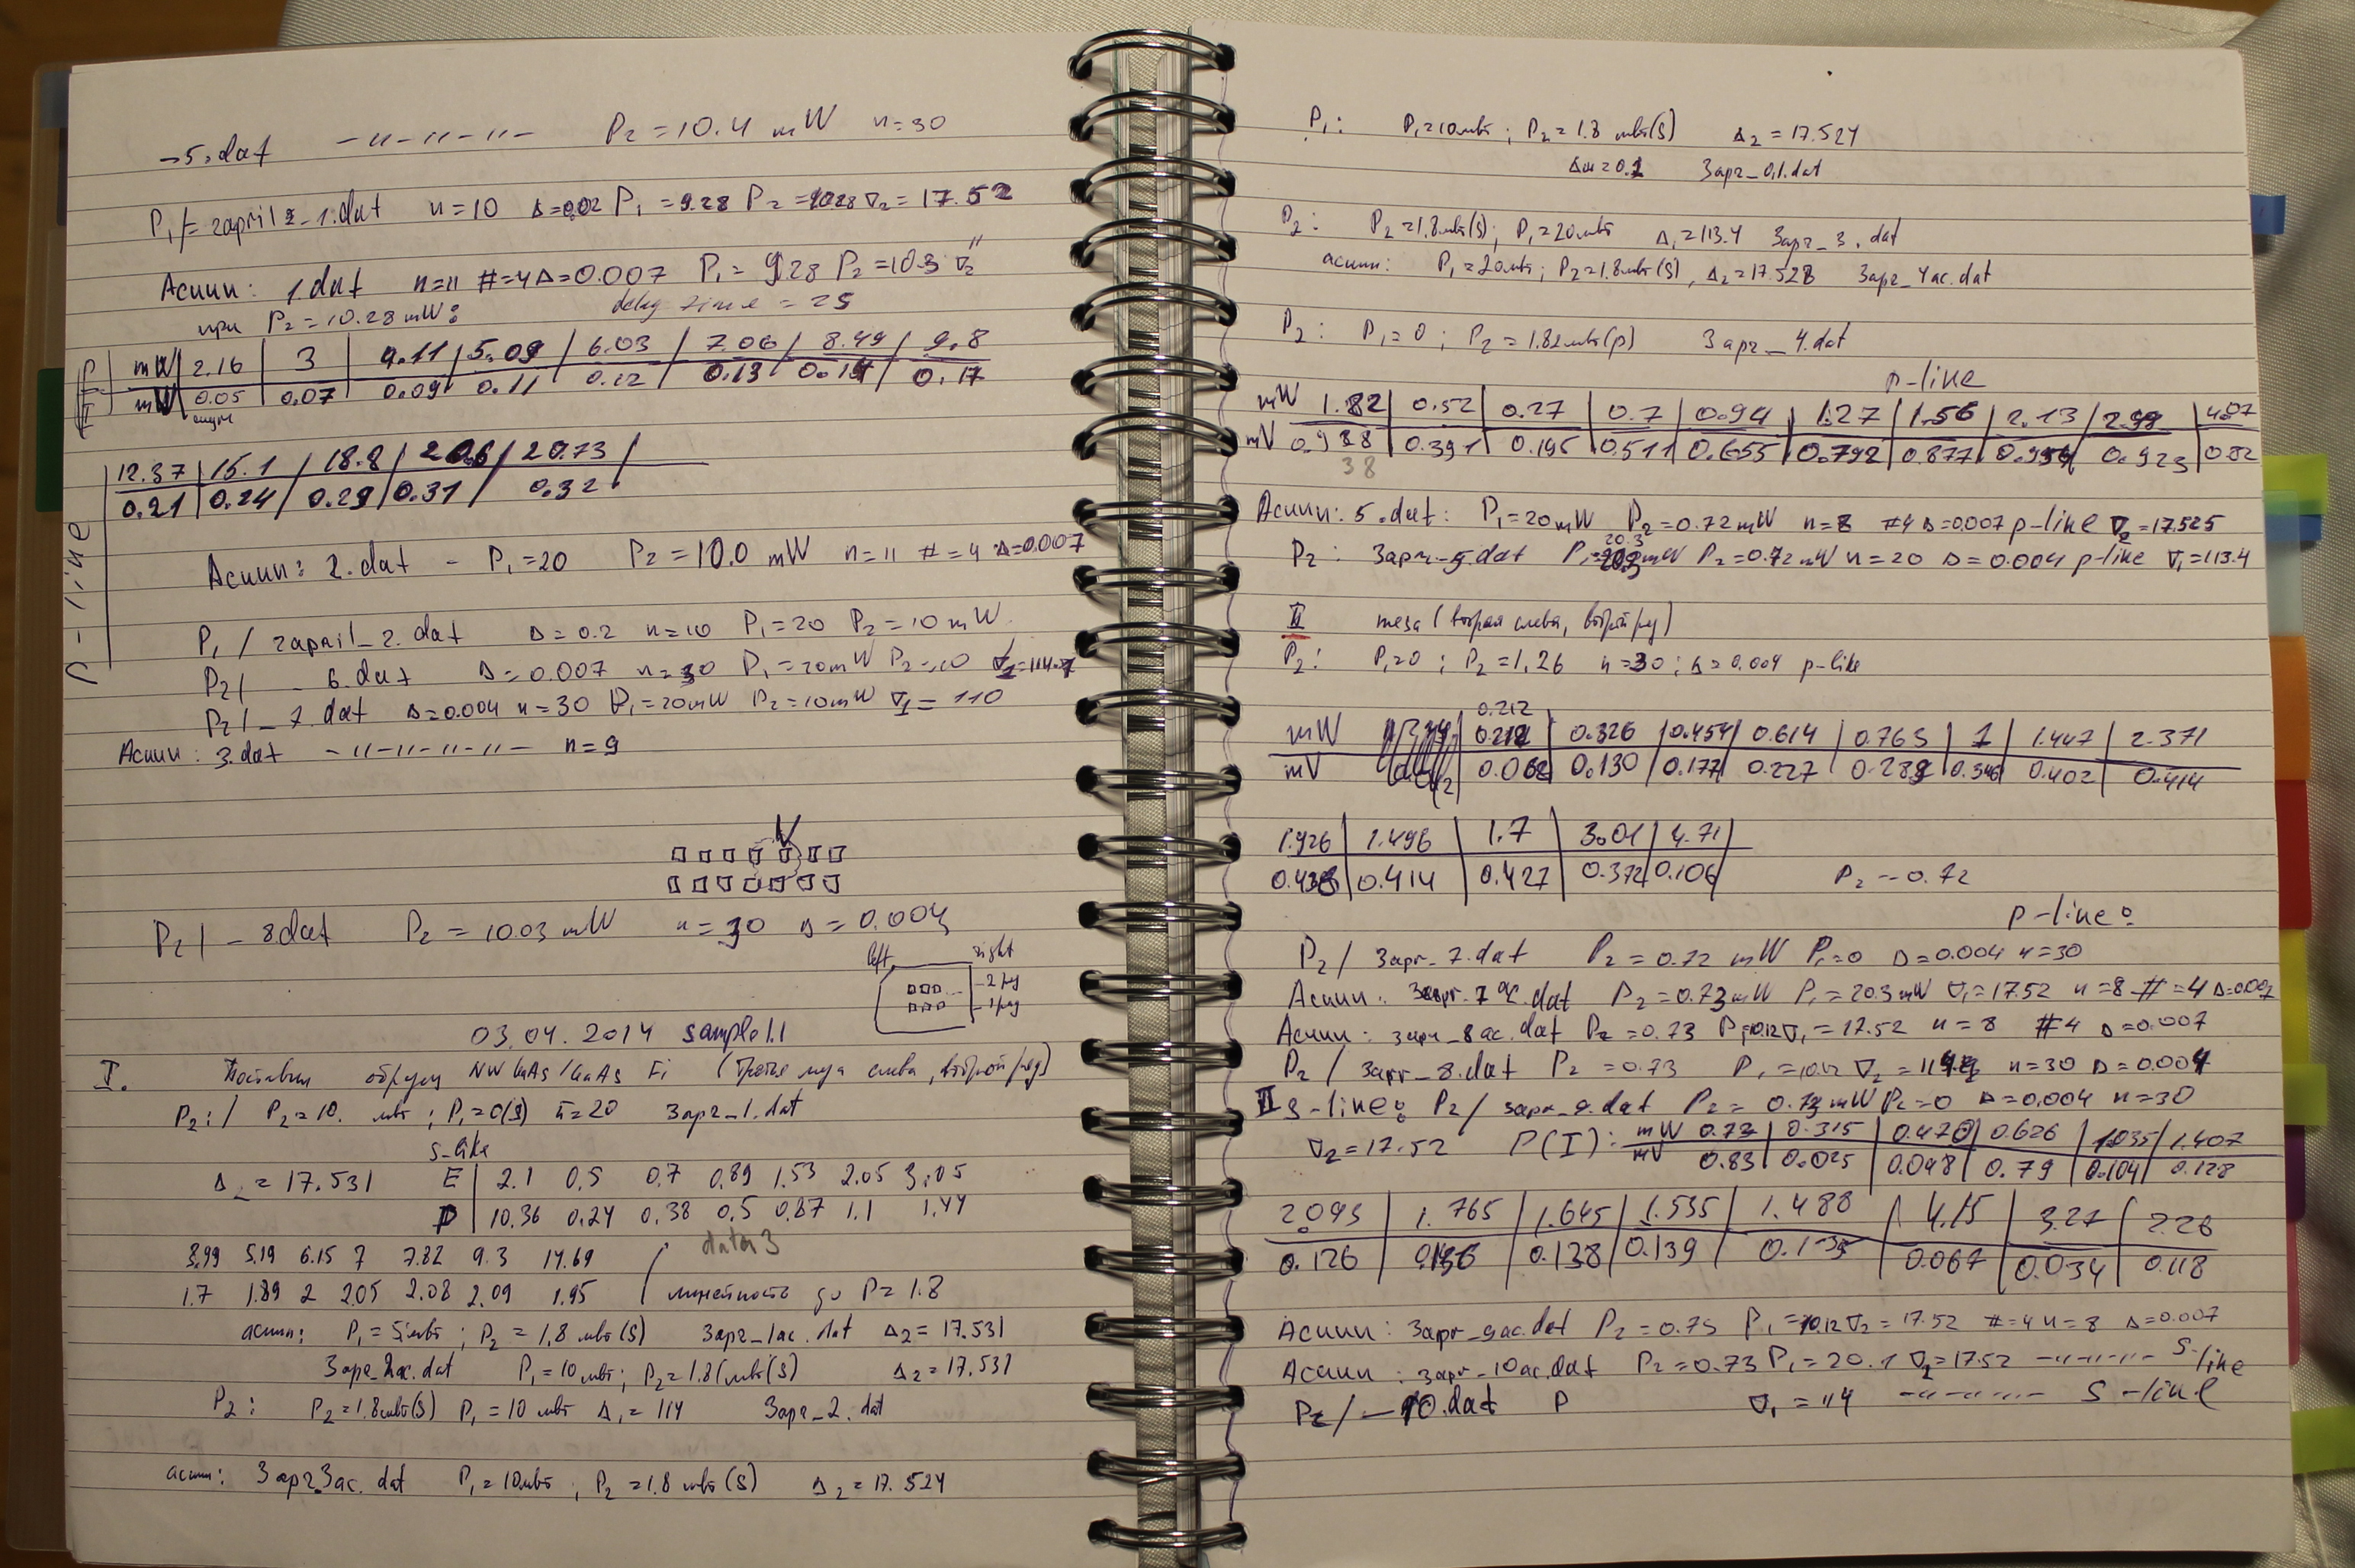 -5.dat -"-"-"- P2=10.4 mW n=30
P1/=2april2_1.dat n=10 Δ=0.02 P1=9.28 P2=10.28 ∇2=17.52
Асимм: 1.dat n=11 #=4 Δ=0.007 P1=9.28 P2=10.3 ∇2 "
при P2=10.28 mW: delay time = 25
P | mW | 2.16 | 3 | 4.11 | 5.09 | 6.03 | 7.06 | 8.49 | 9.8
I | mV | 0.05 | 0.07 | 0.09 | 0.11 | 0.12 | 0.13 | 0.14 | 0.17
12.37 | 15.1 | 18.8 | 20.6 | 20.73
0.21 | 0.24 | 0.29 | 0.31 | 0.32
p-line
Асимм: 2.dat - P1=20 P2=10.0 mW n=11 #=4 Δ=0.007
P1/2april_2.dat Δ=0.2 n=10 P1=20 P2=10 mW
P2/ - 6.dat Δ=0.007 n=30 P1=20mW P2=10
P2/ - 7.dat Δ=0.004 n=30 P1=20mW P2=10mW ∇1=110
Асимм: 3.dat -"-"-"-"- n=9
P2/ - 8.dat P2=10.03 mW n=30 Δ=0.004
left right
-2 ряд
-1 ряд
03.04.2014 sample 1.1
I. Поставили образец NW GaAs/GaAs Fi (третья меза слева, второй ряд)
P2:/ P2=10. мвт; P1=0(s) n=20 3apr_1.dat
s-like
Δ2=17.531 E | 2.1 0.5 0.7 0.89 1.53 2.05 3.05
P | 10.36 0.24 0.38 0.5 0.87 1.1 1.44
3.99 5.19 6.15 7 7.82 9.3 14.69 data3
1.7 1.89 2 2.05 2.08 2.09 1.95 линейность до P=1.8
асимм: P1=5мвт; P2=1,8 мвт(s) 3apr_1ac.dat Δ2=17.531
3apr_2ac.dat P1=10мвт; P2=1.81мвт(s) Δ2=17.531
P2: P2=1.8мвт(s) P1=10 мвт Δ1=114 3apr_2.dat
асим: 3apr_3ac.dat P1=10мвт; P2=1.8 мвт(s) Δ2=17.524
P1: P1=10мвт; P2=1.8 мвт(s) Δ2=17.524
Δn=0.1 3apr_0,1.dat
P2: P2=1,8мвт(s); P1=20мвт Δ1=113.4 3apr_3.dat
асимм: P1=20мвт; P2=1.8мвт(s), Δ2=17.528 3apr_4ac.dat
P2: P1=0; P2=1.82мвт(p) 3apr_4.dat
p-line
mW 1.82 | 0.52 | 0.27 | 0.7 | 0.94 | 1.27 | 1.56 | 2.13 | 2.99 | 4.07
mV 0.938 | 0.391 | 0.195 | 0.511 | 0.655 | 0.792 | 0.877 | 0.954 | 0.923 | 0.82
38
Асимм: 5.dat: P1=20mW P2=0.72mW n=8 #4 Δ=0.007 p-line ∇2=17.525
P2: 3apr_5.dat P1=20.3 mW P2=0.72 mW n=20 Δ=0.004 p-line ∇1=113.4
II меза (вторая слева, второй ряд)
P2: P1=0; P2=1,26 n=30; Δ=0.004 p-like
0.212
mW 0.212 | 0.326 | 0.454 | 0.614 | 0.763 | 1 | 1.447 | 2.371
mV 0.062 | 0.130 | 0.177 | 0.227 | 0.289 | 0.346 | 0.402 | 0.414
1.926 | 1.496 | 1.7 | 3.01 | 4.71
0.438 | 0.414 | 0.427 | 0.372 | 0.106 P2 - 0.72
p-line:
P2/ 3apr_7.dat P2=0.72 mW P1=0 Δ=0.004 n=30
Асимм: 3apr_7ac.dat P2=0.73mW P1=20.3mW ∇1=17.52 n=8 #=4 Δ=0.007
Асимм: 3apr_8ac.dat P2=0.73 P1=10.12 ∇1=17.52 n=8 #4 Δ=0.007
P2/ 3apr_8.dat P2=0.73 P1=10.12 n=30 Δ=0.004
II s-line: P2/ 3apr_9.dat P2=0.73mW P2=0 Δ=0.004 n=30
∇2=17.52 P(I): mW 0.73 | 0.315 | 0.470 | 0.626 | 1.035 | 1.407
mV 0.83 | 0.025 | 0.048 | 0.79 | 0.104 | 0.128
2.093 | 1.765 | 1.645 | 1.535 | 1.488 | 4.15 | 3.27 | 2.26
0.126 | 0.136 | 0.138 | 0.139 | 0.135 | 0.067 | 0.034 | 0.118
Асимм: 3apr_9ac.dat P2=0.75 P1=10.12 ∇2=17.52 #=4 n=8 Δ=0.007
Асимм: 3apr_10ac.dat P2=0.73 P1=20.1 ∇2=17.52 -"-"-"- s-like
P2/ -10.dat P ∇1=114 -"-"-"- s-line